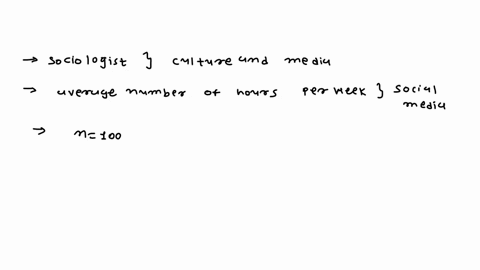 → sociologist } culture and media
→ average number of hours per week } social media
→ n=100